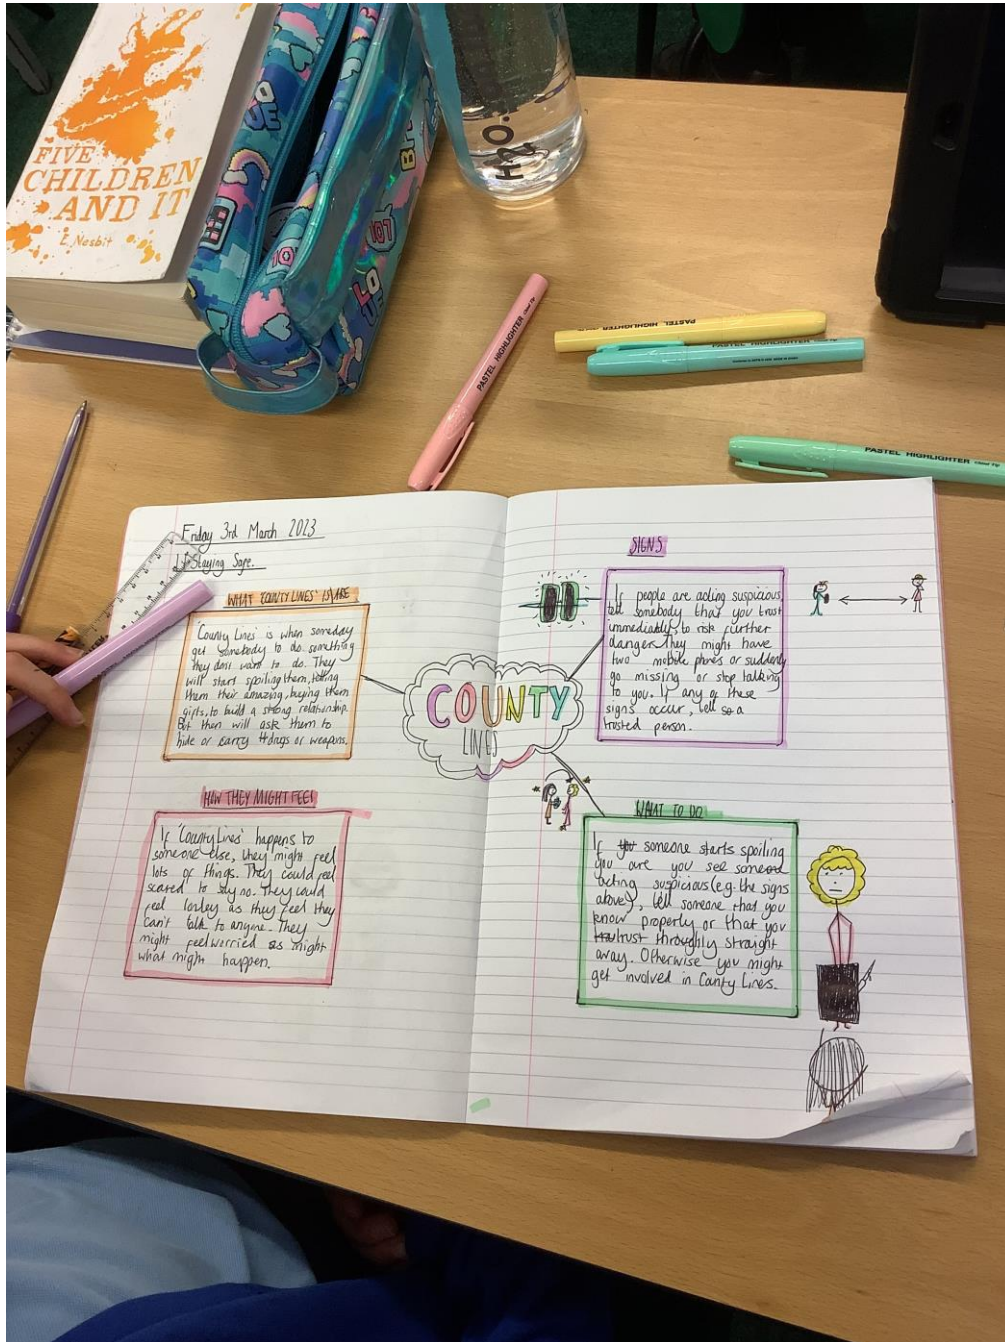 FIVE
CHILDREN
AND IT
E. Nesbit
LO
UE
101
LO
UE
H2O.
PASTEL HIGHLIGHTER
PASTEL HIGHLIGHTER
PASTEL HIGHLIGHTER
PASTEL HIGHLIGHTER
Friday 3rd March 2023
LF Staying Safe.
WHAT 'COUNTY LINES' IS/ARE
'County Lines' is when someday
get somebody to do something
they dont want to do. They
will start spoiling them, telling
them their amazing, buying them
gifts, to build a strong relationship.
But then will ask them to
hide or carry drugs or weapons.
HOW THEY MIGHT FEEL
If 'County Lines' happens to
someone else, they might feel
lots of things. They could feel
scared to say no. They could
feel lonley as they feel they
can't talk to anyone. They
might feel worried as might
what might happen.
COUNTY
LINES
SIGNS
If people are acting suspicious
tell somebody that you trust
immediably, to risk further
danger. They might have
two mobile phones or suddenly
go missing or stop talking
to you. If any of these
signs occur, tell so a
trusted person.
WHAT TO DO
If you someone starts spoiling
you are you see someone
acting suspicious (e.g. the signs
above), tell someone that you
know properly or that you
trust throughly straight
away. Otherwise you might
get involved in County Lines.